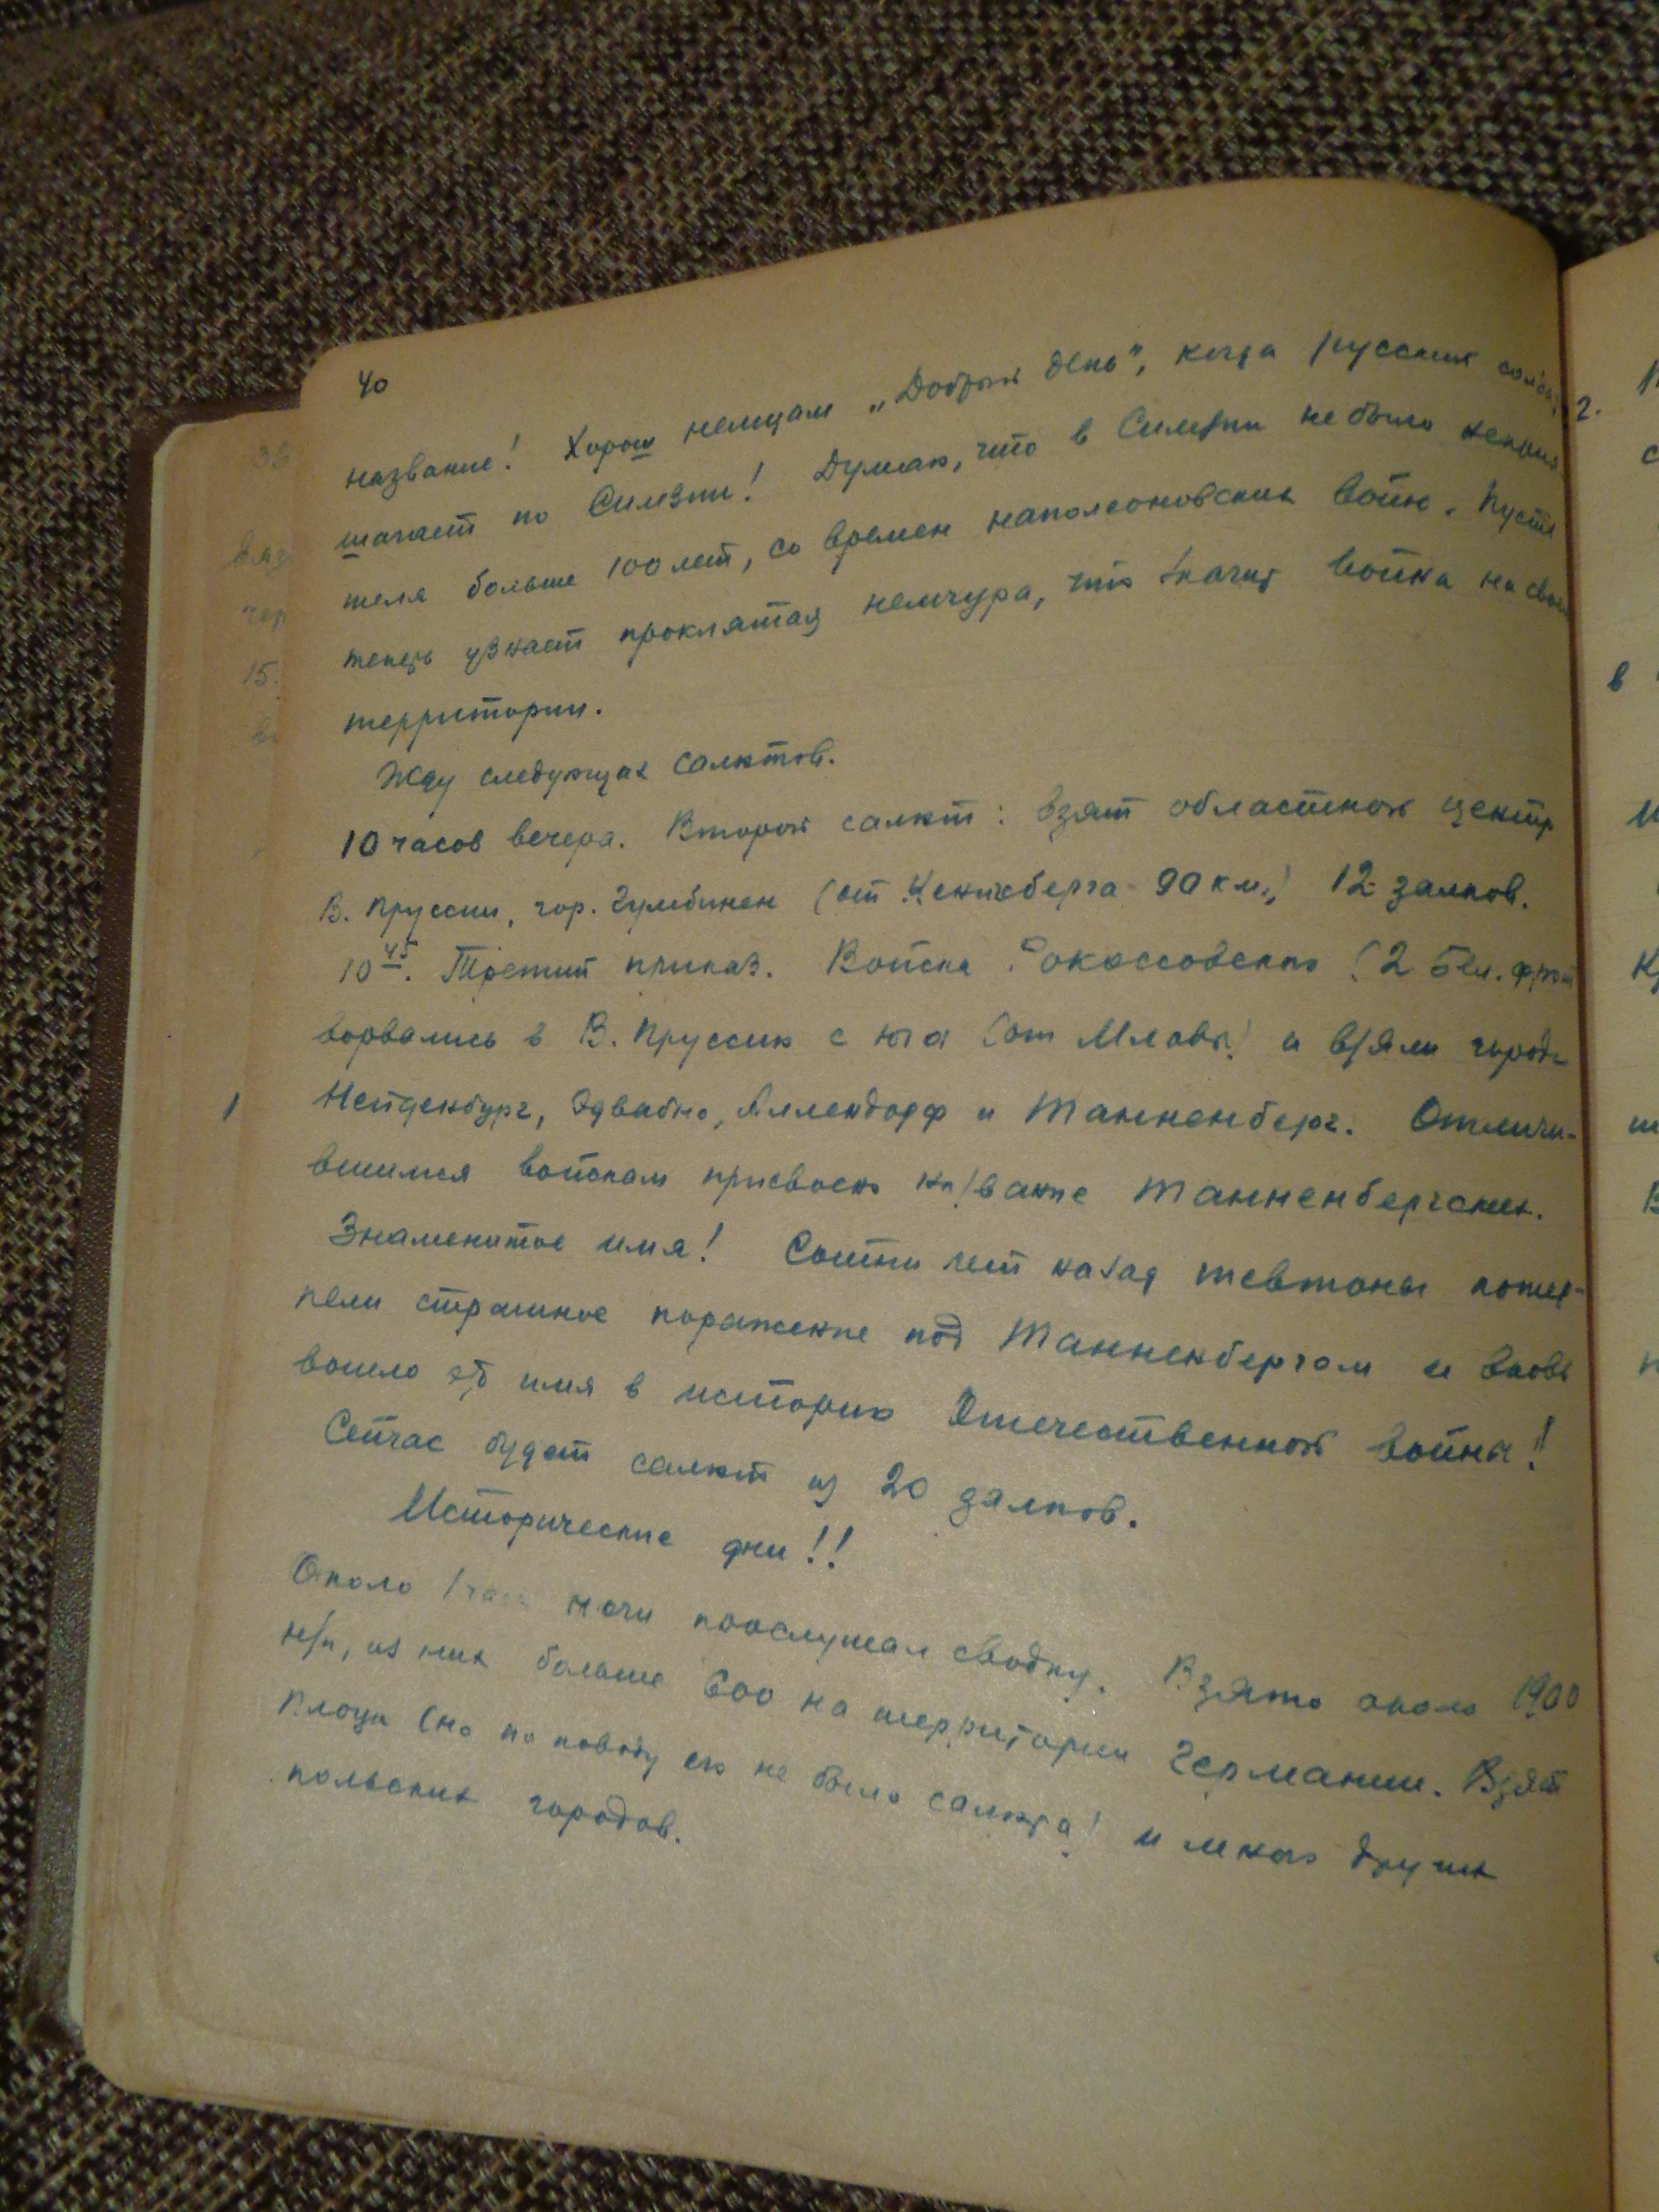 40
название! Хорош немцам „Добрый день", когда русский солдат
шагает по Силезии! Думаю, что в Силезии не было неприя
теля больше 100 лет, со времен наполеоновских войн. Пусть
теперь узнает проклятая немчура, что значит война на своей
территории.
Жду следующих салютов.
10 часов вечера. Второй салют: взят областной центр
В. Пруссии, гор. Гумбинен (от Кенигсберга 90 км.) 12 залпов.
10 45. Третий приказ. Войска Рокоссовского (2 Бел. фронт
ворвались в В. Пруссию с юга (от Млавы) и взяли города
Нейденбург, Едвабно, Аллендорф и Танненберг. Отличи-
вшимся войскам присвоено название Танненбергских.
Знаменитое имя! Сотни лет назад тевтоны потер-
пели страшное поражение под Танненбергом и вновь
вошло это имя в историю Отечественной войны!
Сейчас будет салют из 20 залпов.
Исторические дни!!
Около 1 часа ночи прослушал сводку. Взято около 1900
н/п, из них больше 600 на территории Германии. Взят
Плоцк (но по поводу его не было салюта) и много других
польских городов.
36
вяз
чер
15.